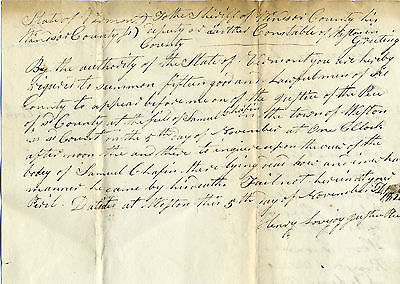 State of Vermont To the Sheriff of Windsor County his
Windsor County Ss deputy or Either Constable of Weston
County Greeting
By the authority of the State of Vermont you are hereby
required to summon fifteen good and Lawful men of sd
County to appear before me on of the Justice of the Peace
of sd County at the of Samuel Chapin in the town of Weston
in sd County on the 5th day of November at One O Clock
after noon the and there to inquire upon the view of the
body of Samuel Chapin there lying dead how and in what
manner he came by his death Fail not herein at your
Peril Dated at Weston this 5th day of November
Henry Lovejoy Justice Peace